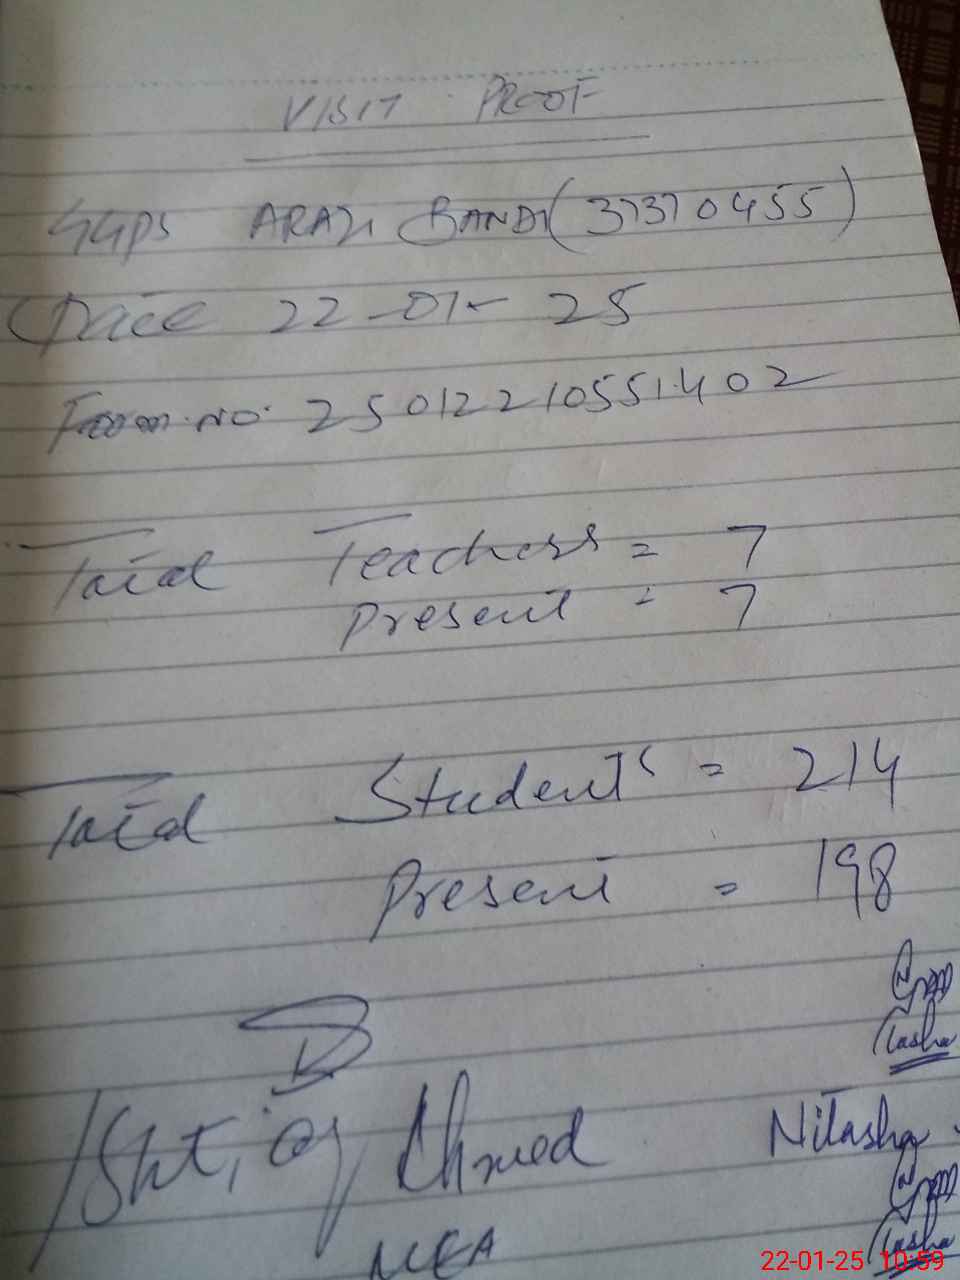 VISIT PROOF
GGPS ARAZI BANDI (37370455)
Date 22-01-25
Form.no. 25012210551402
Total Teachers = 7
Present = 7
Total Students = 214
Present = 198
Ishtiaq Ahmed
Nitasha
MEA
22-01-25 10:59